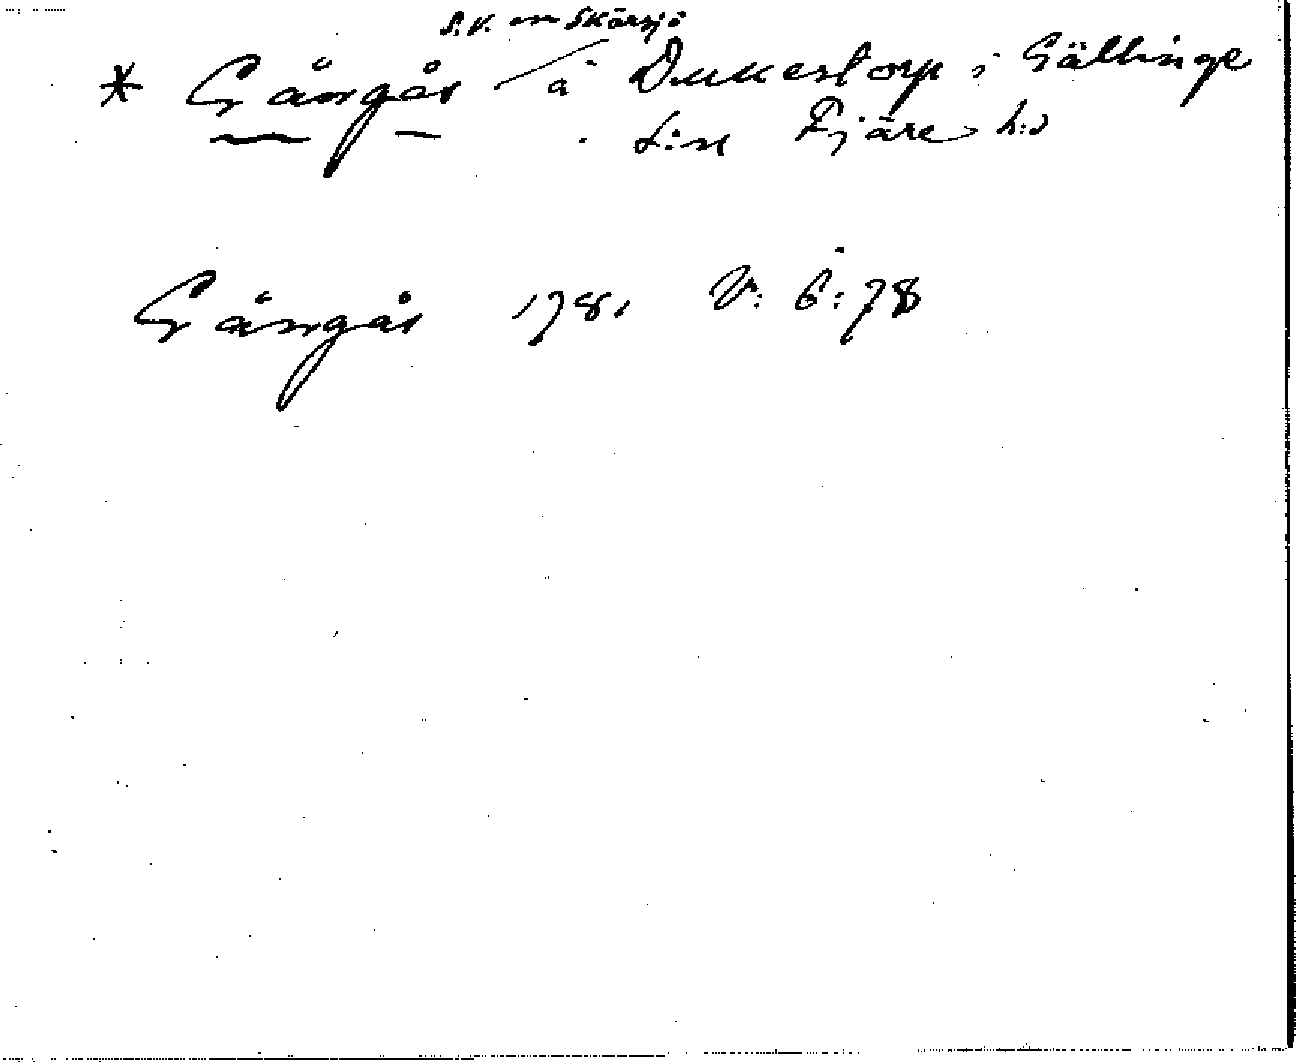 S.V. om Skärsjö
* Gångås å Dukestorp i Gällinge
s:n Fjäre h:d
Gångås 1781 V: 6: 78